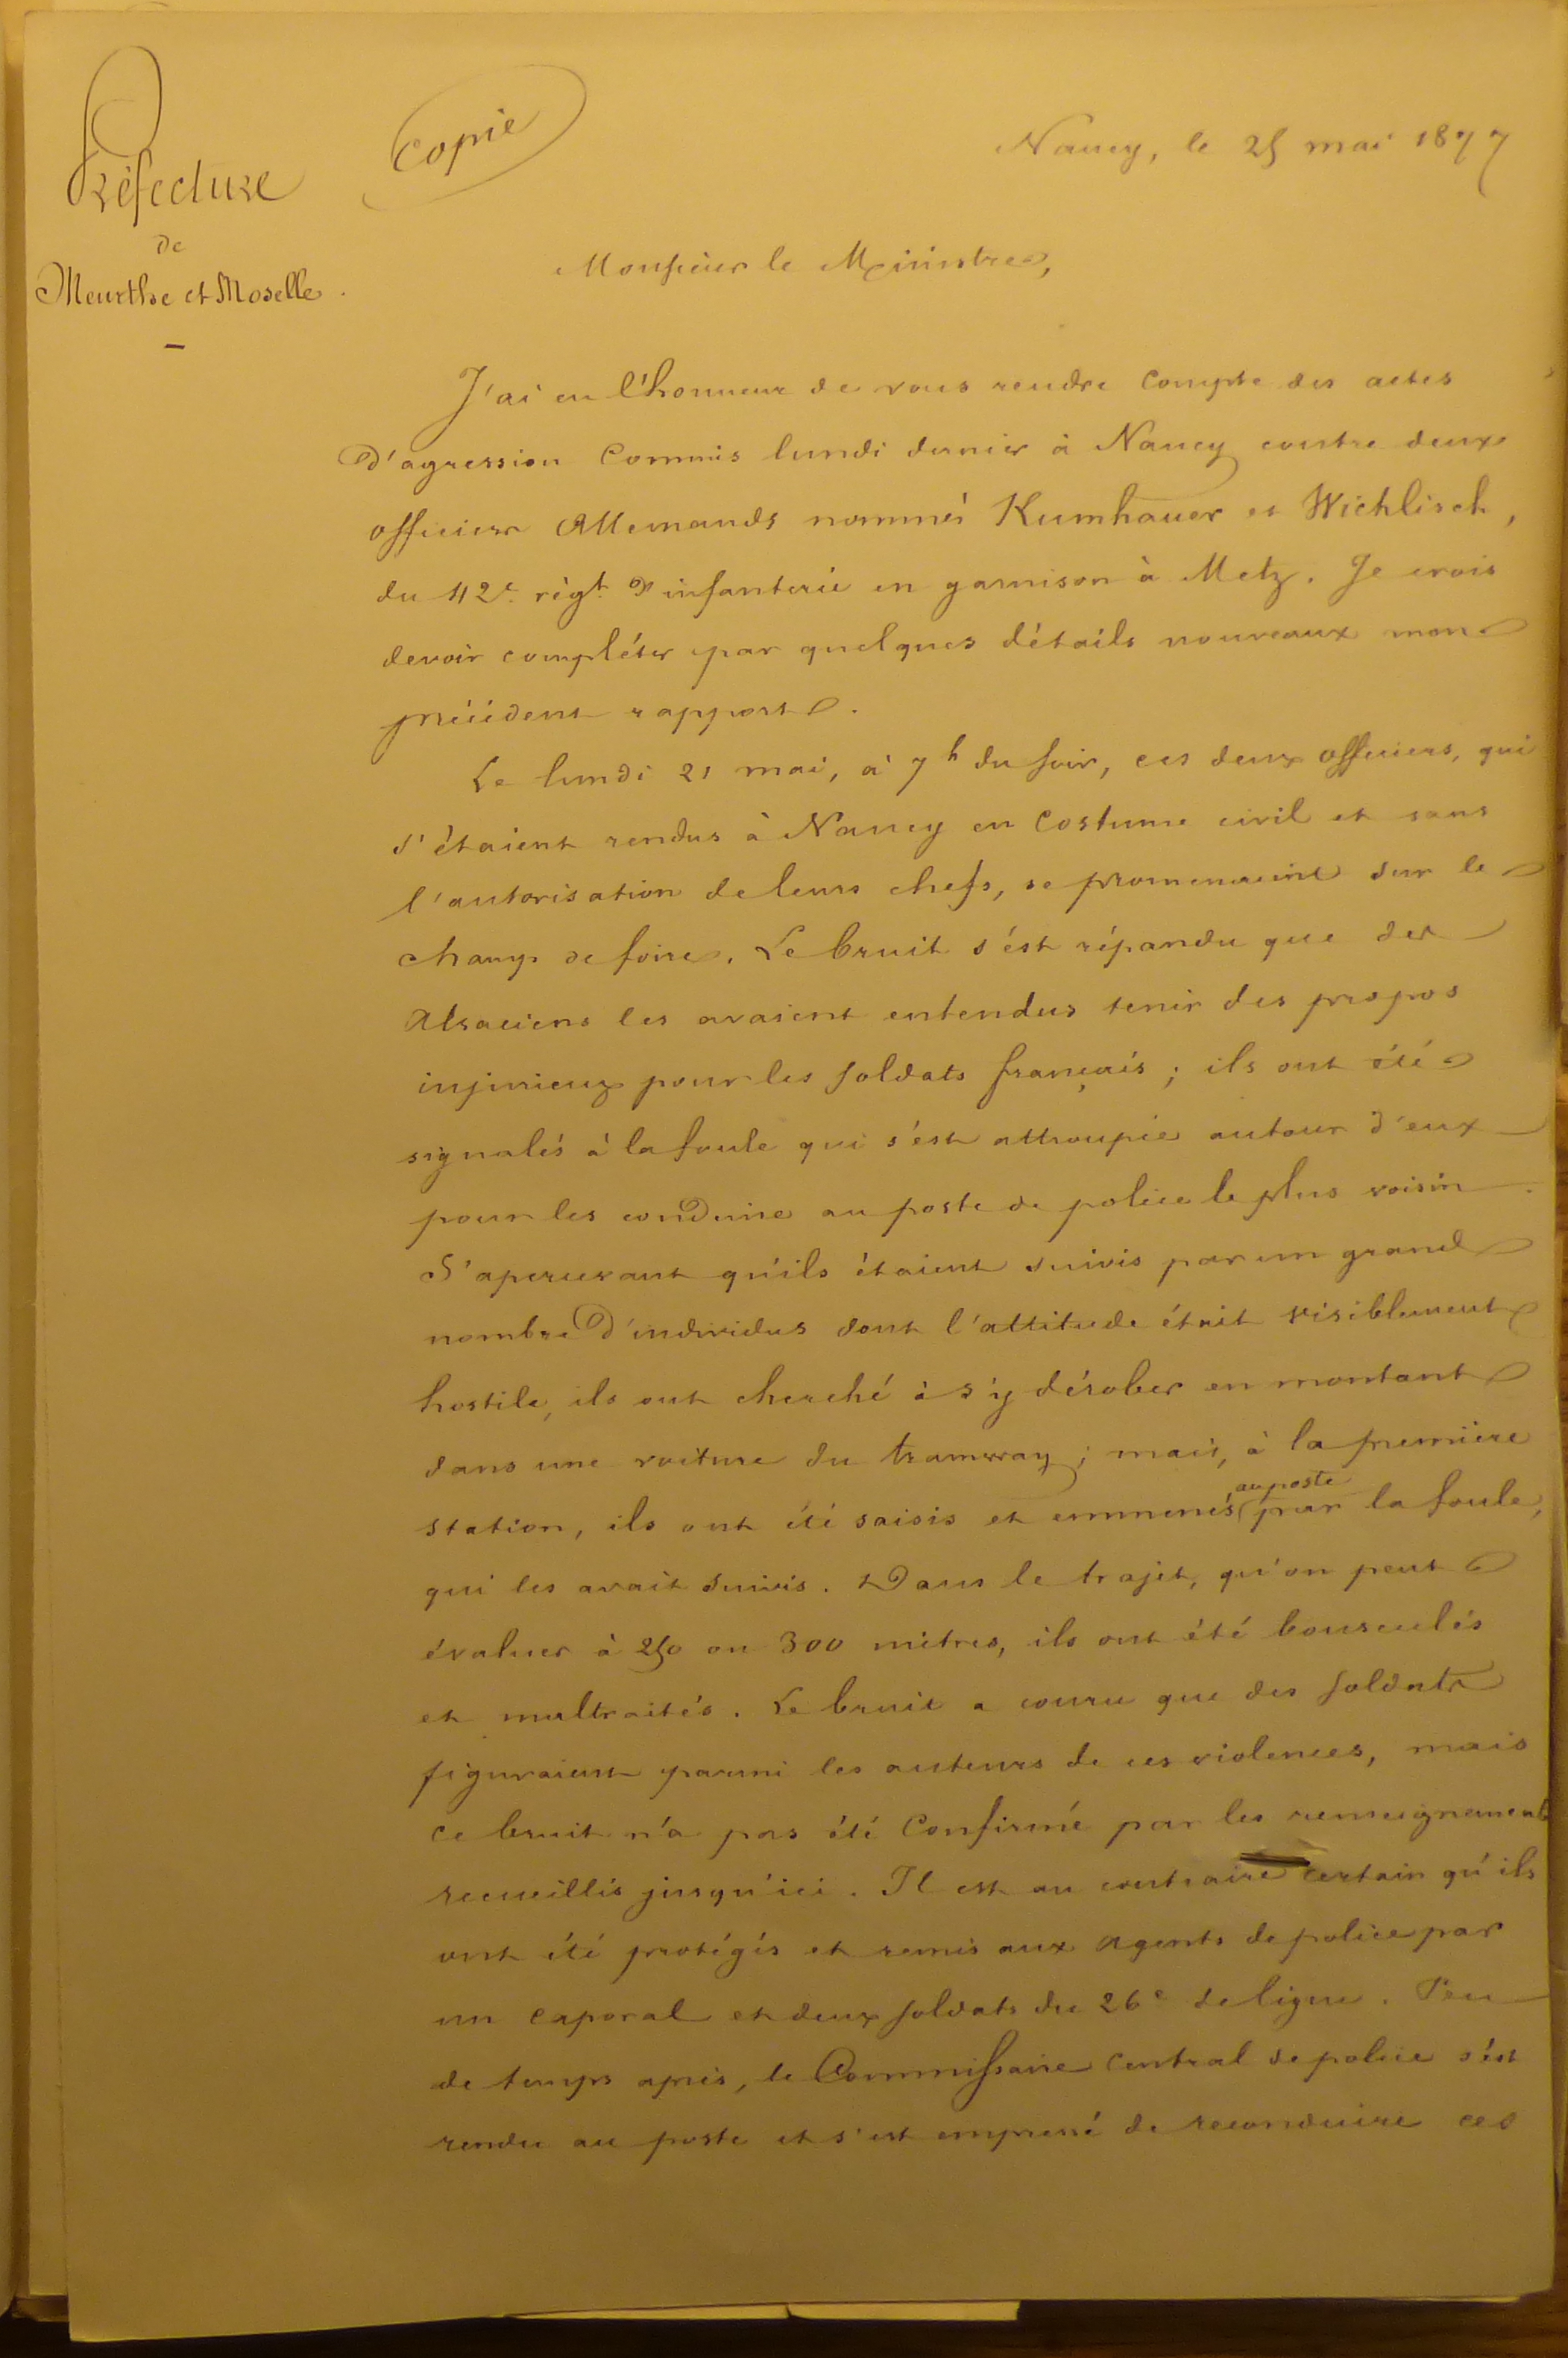 Préfecture
de
Meurthe et Moselle.
Copie
Nancy, le 25 mai 1877
Monsieur le Ministre,
J'ai eu l'honneur de vous rendre compte des actes
d'agression commis lundi dernier à Nancy contre deux
officiers Allemands nommés Kumhauer et Wichlisch,
du 42e. régt. d'infanterie en garnison à Metz. Je crois
devoir compléter par quelques détails nouveaux mon
précédent rapport.
Le lundi 21 mai, à 7h du soir, ces deux officiers, qui
s'étaient rendus à Nancy en costume civil et sans
l'autorisation de leurs chefs, se promenaient sur le
champ de foire. Le bruit s'est répandu que des
Alsaciens les avaient entendus tenir des propos
injurieux pour les soldats français ; ils ont été
signalés à la foule qui s'est attroupée autour d'eux
pour les conduire au poste de police le plus voisin.
S'apercevant qu'ils étaient suivis par un grand
nombre d'individus dont l'attitude était visiblement
hostile, ils ont cherché à s'y dérober en montant
dans une voiture du tramway ; mais, à la première
station, ils ont été saisis et emmenés au poste par la foule,
qui les avait suivis. Dans le trajet, qu'on peut
évaluer à 250 ou 300 mètres, ils ont été bousculés
et maltraités. Le bruit a couru que des soldats
figuraient parmi les auteurs de ces violences, mais
ce bruit n'a pas été confirmé par les renseignements
recueillis jusqu'ici. Il est au contraire certain qu'ils
ont été protégés et remis aux agents de police par
un caporal et deux soldats du 26e de ligne. Peu
de temps après, le Commissaire central de police s'est
rendu au poste et s'est empressé de reconduire ces